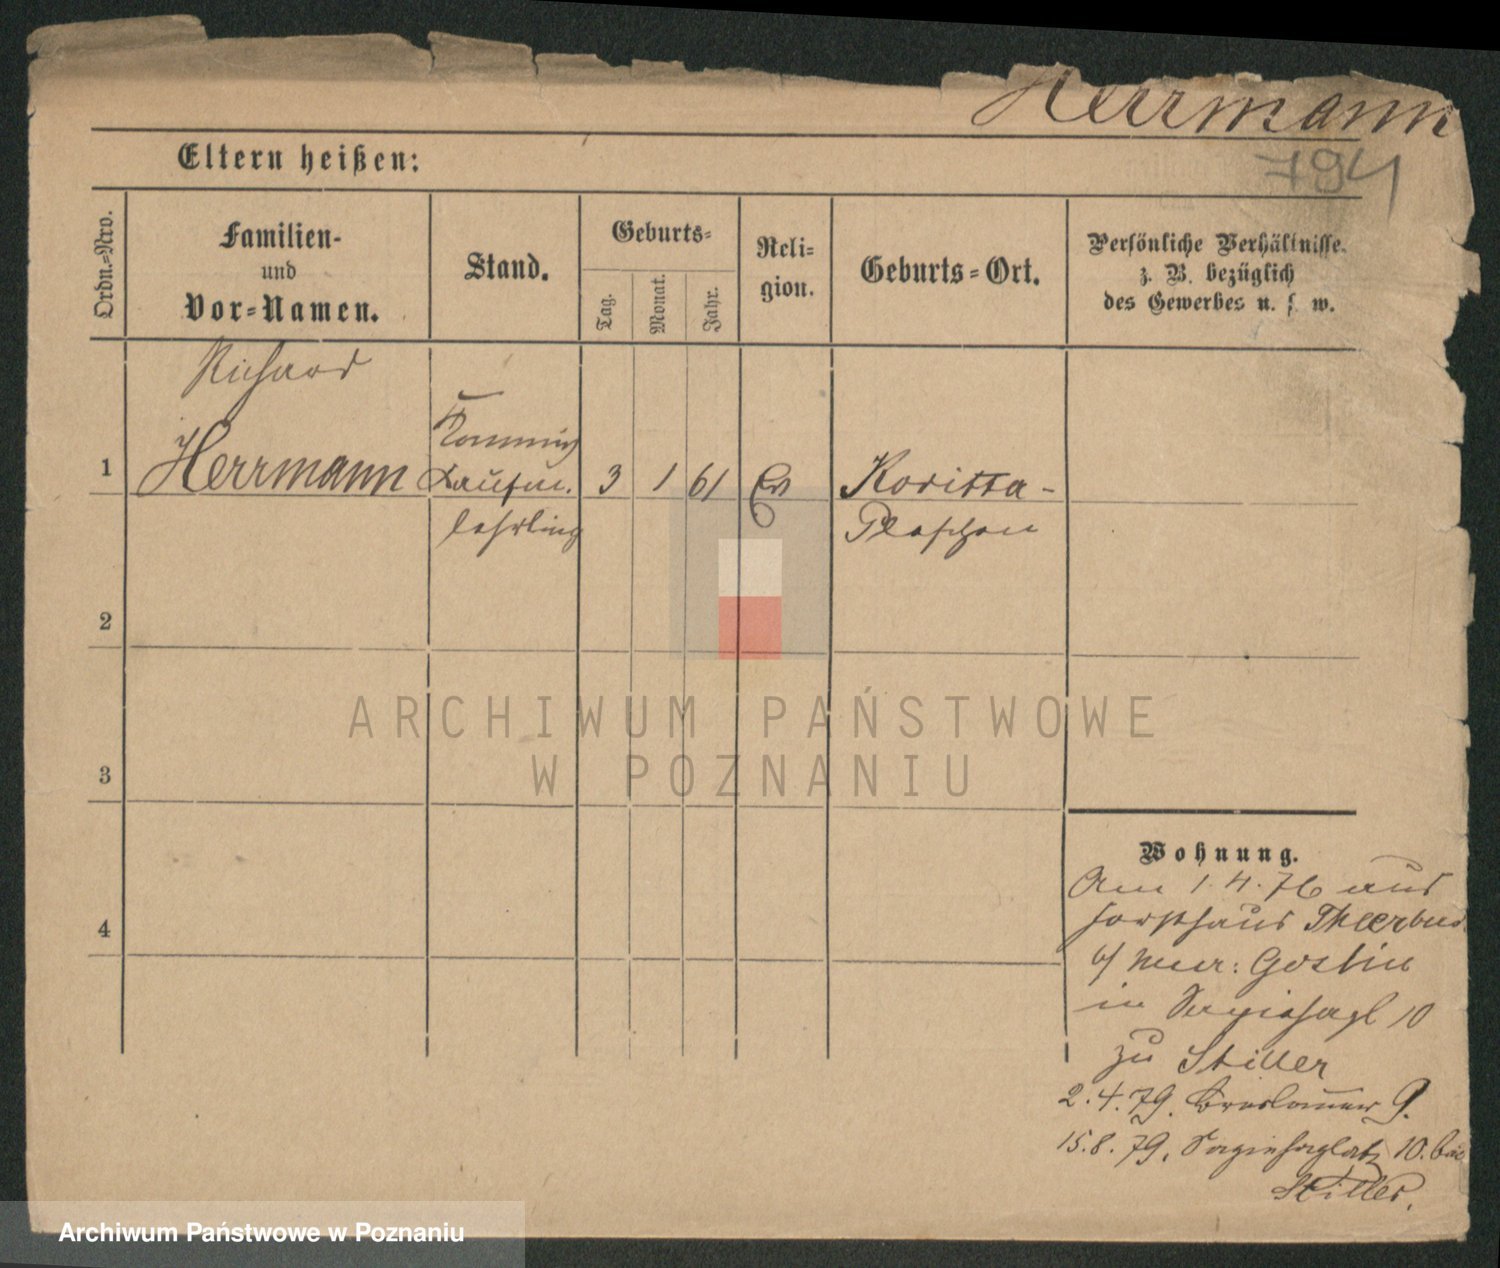 Herrmann
794
Eltern heißen:
Ordn.=Nro.
Familien-
und
Vor=Namen.
Stand.
Geburts=
Tag.
Monat.
Jahr.
Reli=
gion.
Geburts=Ort.
Persönliche Verhältnisse.
z. B. bezüglich
des Gewerbes u. s. w.
Richard
1
Herrmann
Kommis
Kaufm.
lehrling
3 1 61
Ev
Koritta-
Pleschen
2
3
4
ARCHIWUM PAŃSTWOWE
W POZNANIU
Wohnung.
Am 1.4.76 aus
Forsthaus
b/ Gostin
in Sapiehapl 10
zu Stiller
2.4.79. Breslauer 9.
15.8.79. Sapiehaplatz 10. bei
Stiller.
Archiwum Państwowe w Poznaniu